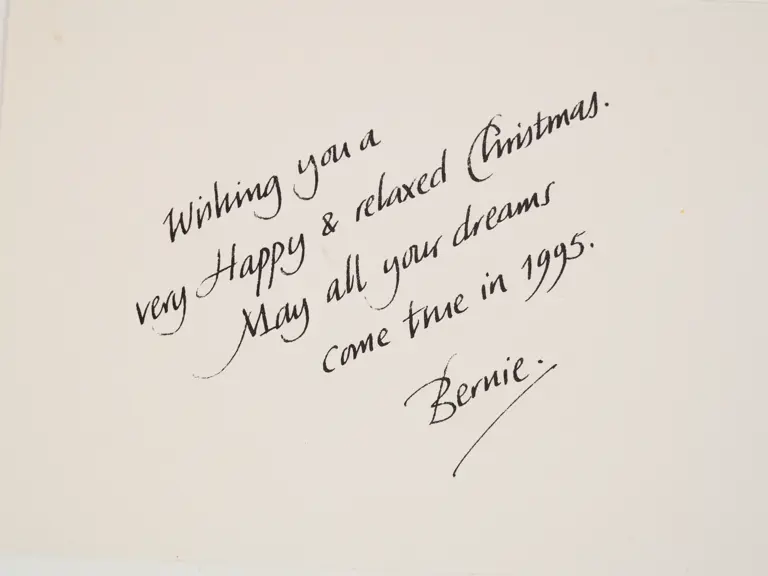 Wishing you a
very Happy & relaxed Christmas.
May all your dreams
come true in 1995.
Bernie.